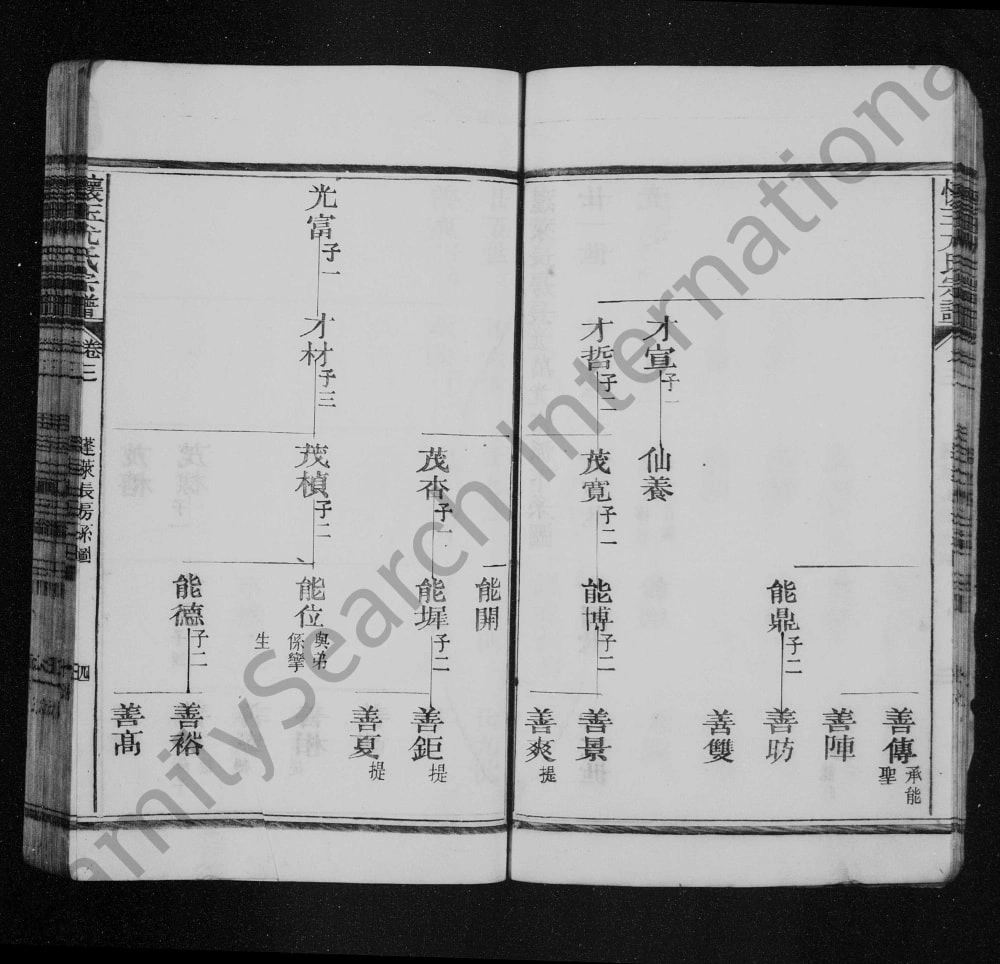 善傳
承能
聖
善陣
能鼎
子二
善昉
善雙
才宣
子一
仙養
才哲
子一
茂寬
子二
能博
子二
善景
善爽
提
能開
茂杏
子一
能墀
子二
善鉅
提
善夏
提
光富
子一
才材
子三
茂楨
子二
能位
與弟
係孿
生
能德
子二
善裕
善髙
懷玉尤氏宗譜
卷三
蓬萊長房系圖
四
FamilySearch International